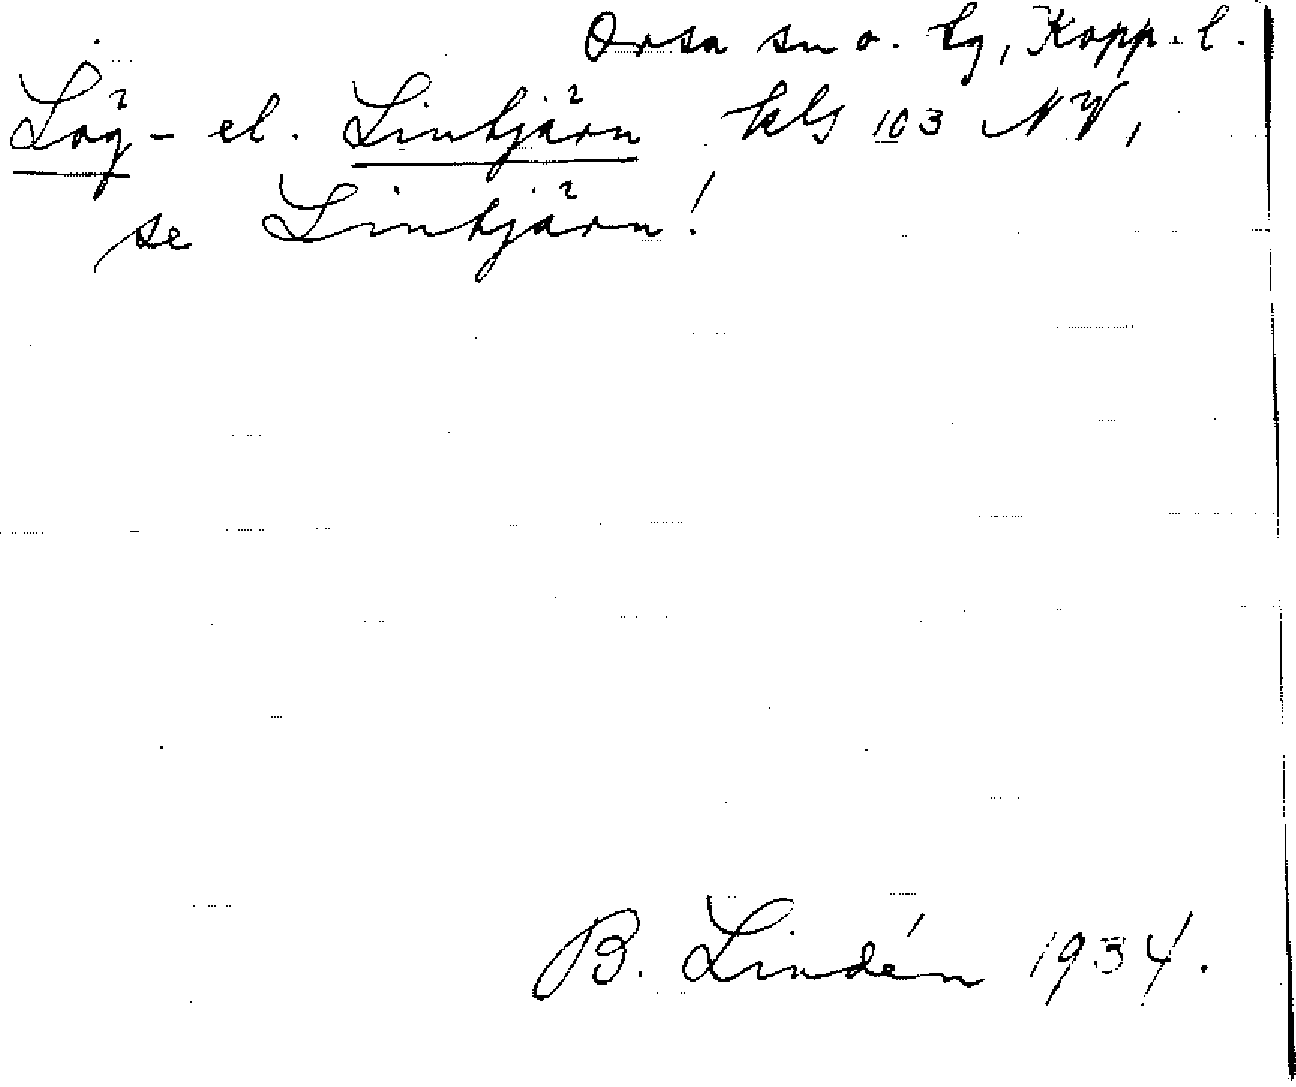 Orsa sn o. tg, Kopp. l.
el. Lintjärn² kbl 103 NV,
se Lintjärn²!
B. Lindén 1934.